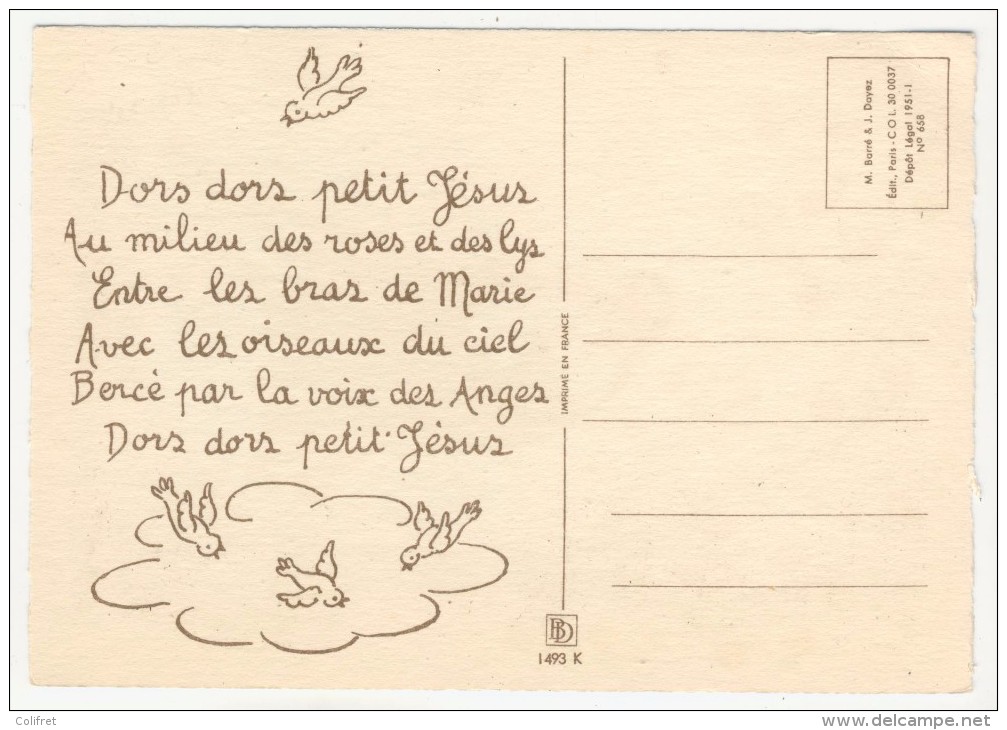 Dors dors petit Jésus
Au milieu des roses et des lys
Entre les bras de Marie
Avec les oiseaux du ciel
Bercé par la voix des Anges
Dors dors petit Jésus
IMPRIMÉ EN FRANCE
BD
1493 K
M. Barré & J. Dayez
Édit., Paris - COL. 30 0037
Dépôt Légal 1951-I
N° 658
Colifret
www.delcampe.net